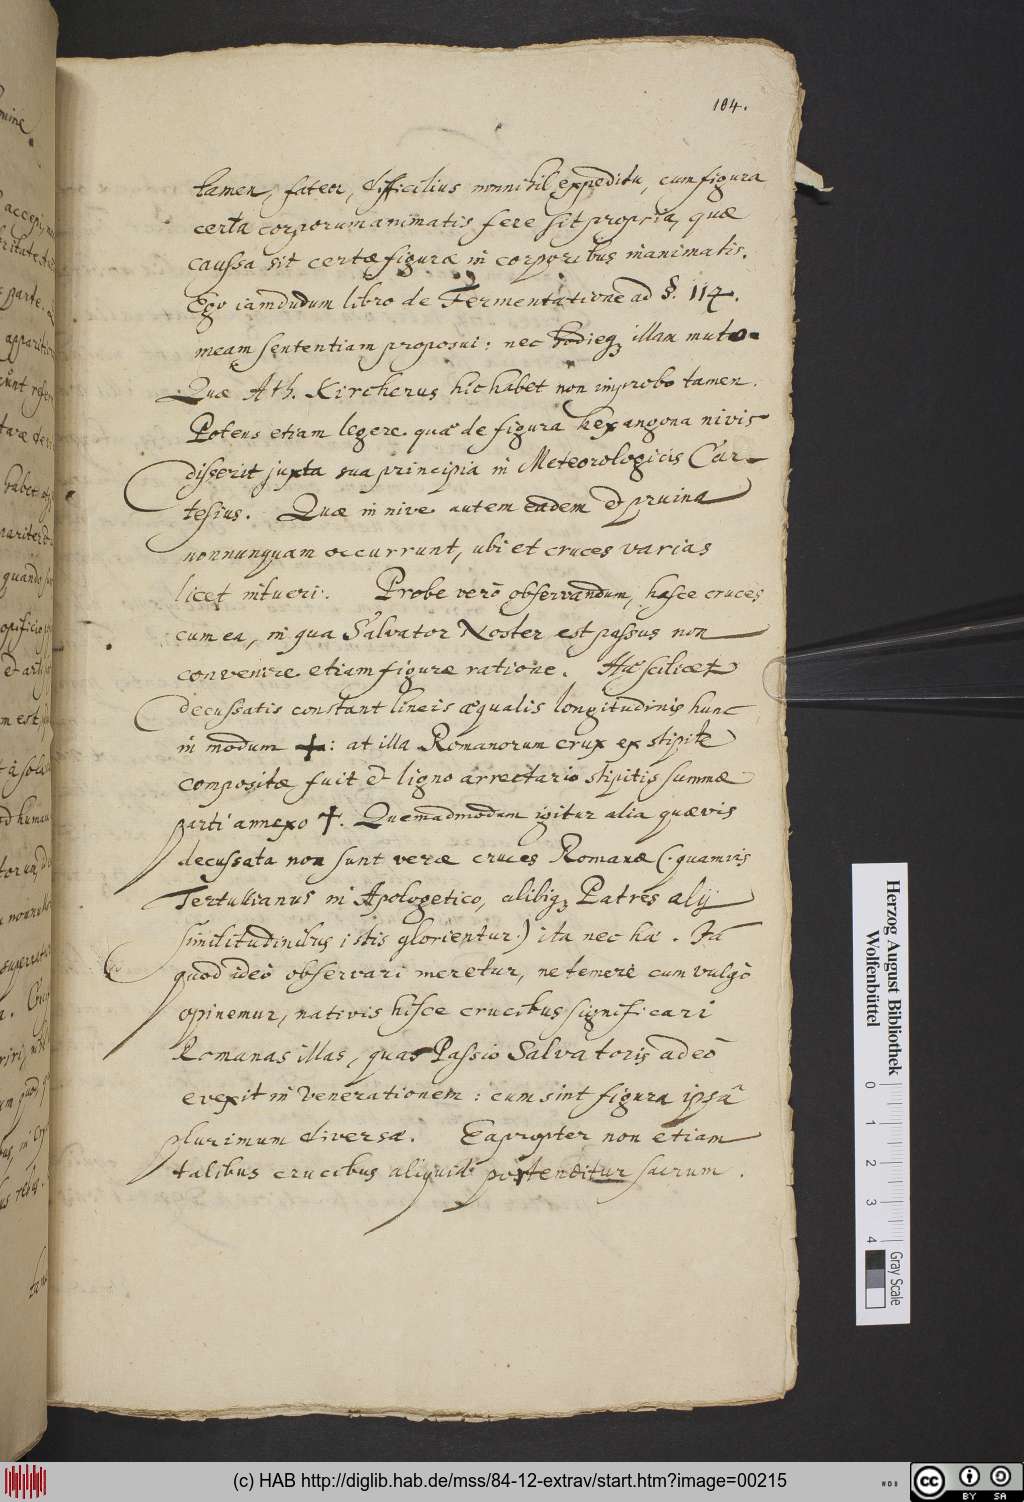 104.
tamen, fateor, difficilius nonnihil expeditu, cum figura
certa corporum animatis fere sit propria, quæ
caussa sit certæ figuræ in corporibus inanimatis.
Ego iamdudum libro de Fermentatione ad §. 114.
meam sententiam proposui: nec hodieq; illam muto.
Quæ Ath. Kircherus hic habet non improbo tamen.
Potens etiam legere quæ de figura hexangona nivis
disserit juxta sua principia in Meteorologicis Car-
tesius. Quæ in nive autem eadem & pruina
nonnunquam occurrunt, ubi et cruces varias
licet intueri. Probe verò observandum, hasce cruces
cum ea, in qua Salvator Noster est passus non
convenire etiam figuræ ratione. Hæ scilicet
decussatis constant lineis æqualis longitudinis hunc
in modum +: at illa Romanorum crux ex stipite
compositæ fuit & ligno arrectario stipitis summæ
parti annexo †. Quemadmodum igitur alia quævis
decussata non sunt veræ cruces Romanæ (quamvis
Tertullianus in Apologetico, alibiq; Patres alij
similitudinibus istis glorientur) ita nec hæ.
quod ideò observari meretur, ne temerè cum vulgò
opinemur, nativis hisce crucibus significari
Romanas illas, quas Passio Salvatoris adeò
evexit in venerationem: cum sint figura ipsâ
plurimum diversæ. Eapropter non etiam
talibus crucibus aliquid portenditur sacrum.
Herzog August Bibliothek
Wolfenbüttel
0 1 2 3 4
Gray Scale
(c) HAB http://diglib.hab.de/mss/84-12-extrav/start.htm?image=00215
cc BY SA